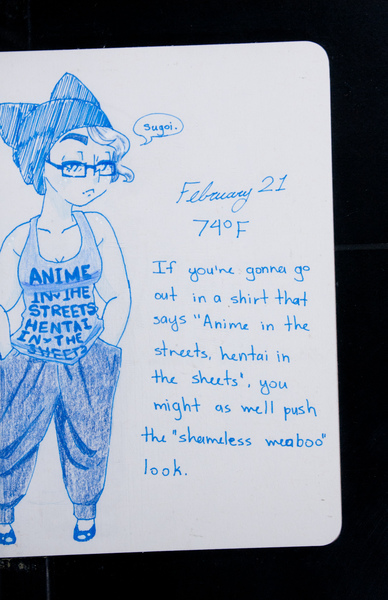 sugoi.
February 21
74°F
ANIME
IN THE
STREETS
HENTAI
IN THE
SHEETS
If you're gonna go
out in a shirt that
says "Anime in the
streets, hentai in
the sheets", you
might as well push
the "shameless weaboo"
look.